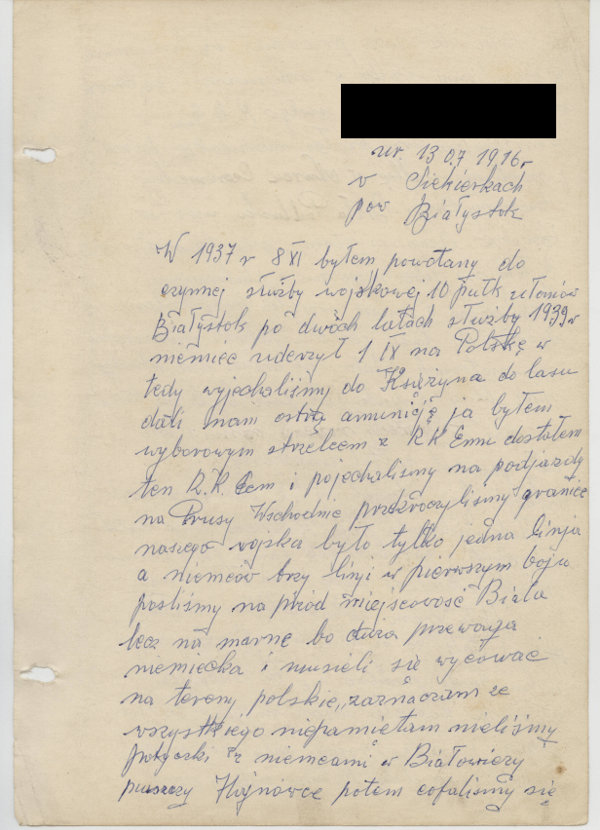 ur. 13 07 1916r
v Siekierkach
pow Białystok
W 1937 r 8 XI byłem powołany do
czynnej służby wojskowej 10 pułk ułanów
Białystok po dwóch latach służby 1939 r
niemiec uderzył 1 IX na Polskę w
tedy wyjechaliśmy do Księżyna do lasu
dali nam ostrą amunicję ja byłem
wyborowym strzelcem z R K Emu dostałem
ten R.K. Cem i pojechalismy na podjazdy
na Prusy Wschodnie przekroczyliśmy granicę
naszego wojska było tylko jedna linja
a niemców trzy linji w pierwszym boju
posliśmy na przód miejscowość Biala
lecz na marne bo duża przewaga
niemiecka i musieli się wycować
na tereny polskie, zaznaczam ze
wszystkiego niepamietam mieliśmy
potyczki z niemcami w Białowieży
puszczy Hajnówce potem cofalismy się